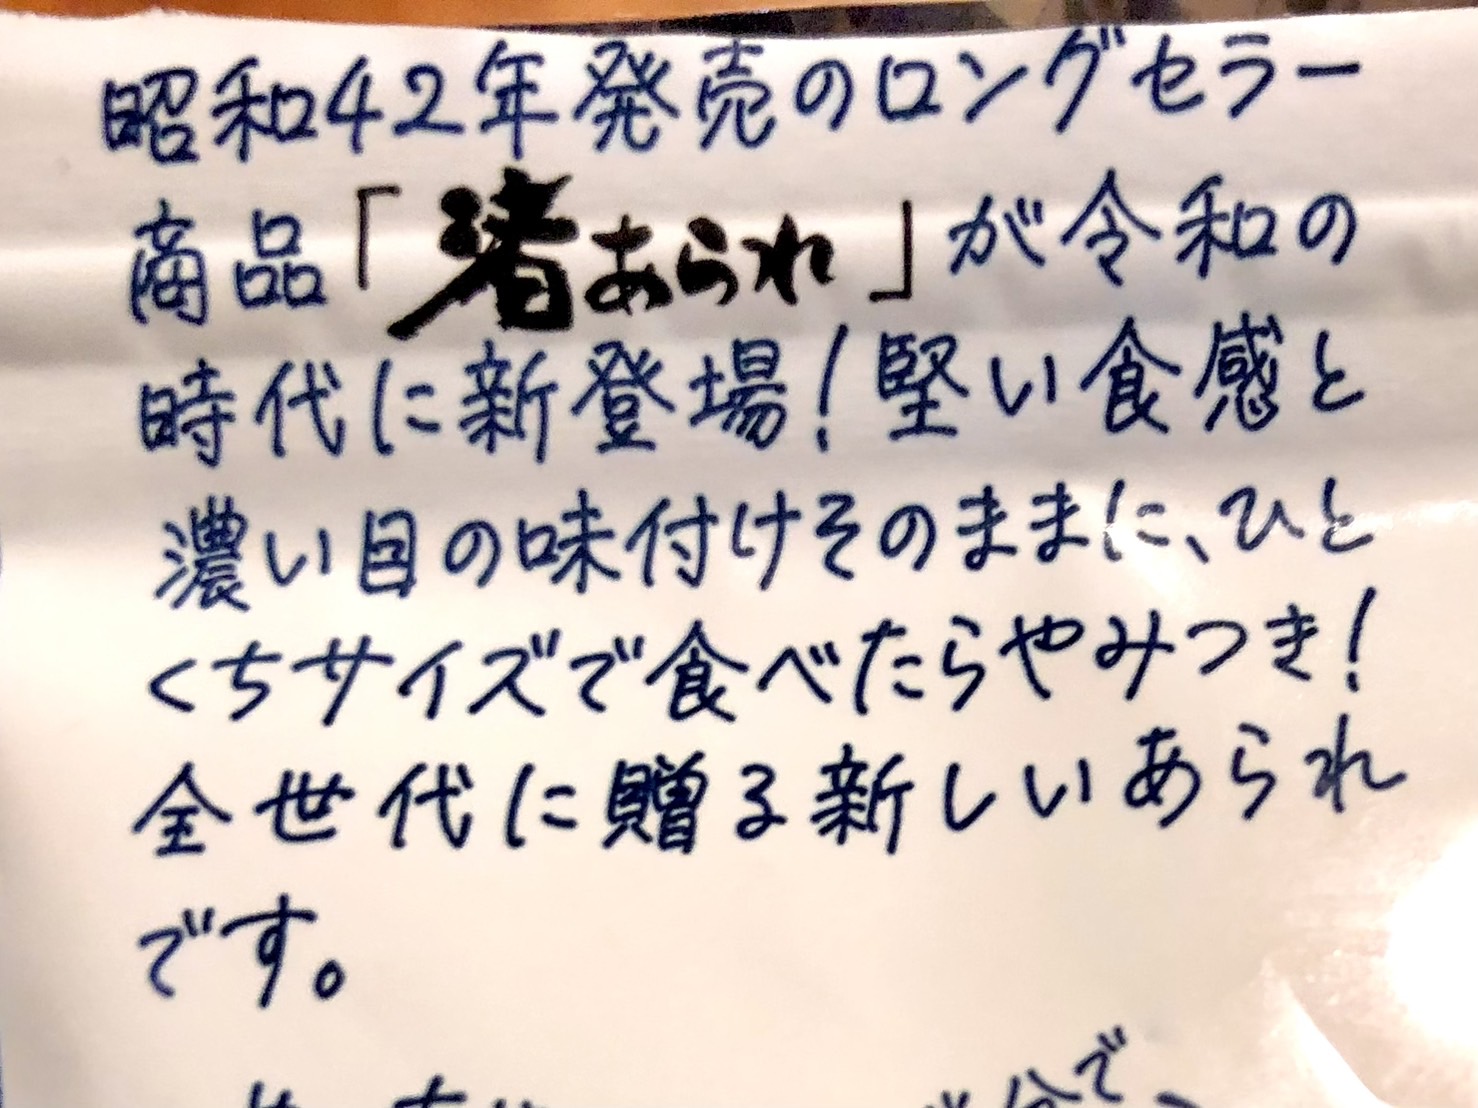 昭和42年発売のロングセラー
商品「渚あられ」が令和の
時代に新登場!堅い食感と
濃い目の味付けそのままに、ひと
くちサイズで食べたらやみつき!
全世代に贈る新しいあられ
です。